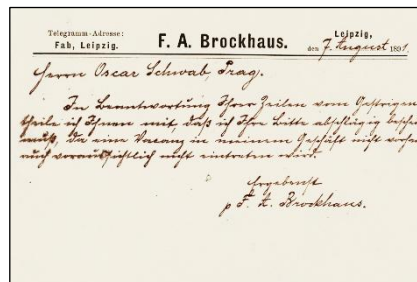 Telegramm-Adresse:
Fab, Leipzig.
F. A. Brockhaus.
Leipzig,
den 7. August 1891.
Herrn Oscar Schwab, Prag.
In Beantwortung Ihrer Zeilen vom Gestrigen
theile ich Ihnen mit, daß ich Ihre Bitte abschlägig
muß, da eine Vacanz in meinem Geschäft nicht
auch voraussichtlich nicht eintreten wird.
Ergebenst
p F. A. Brockhaus.